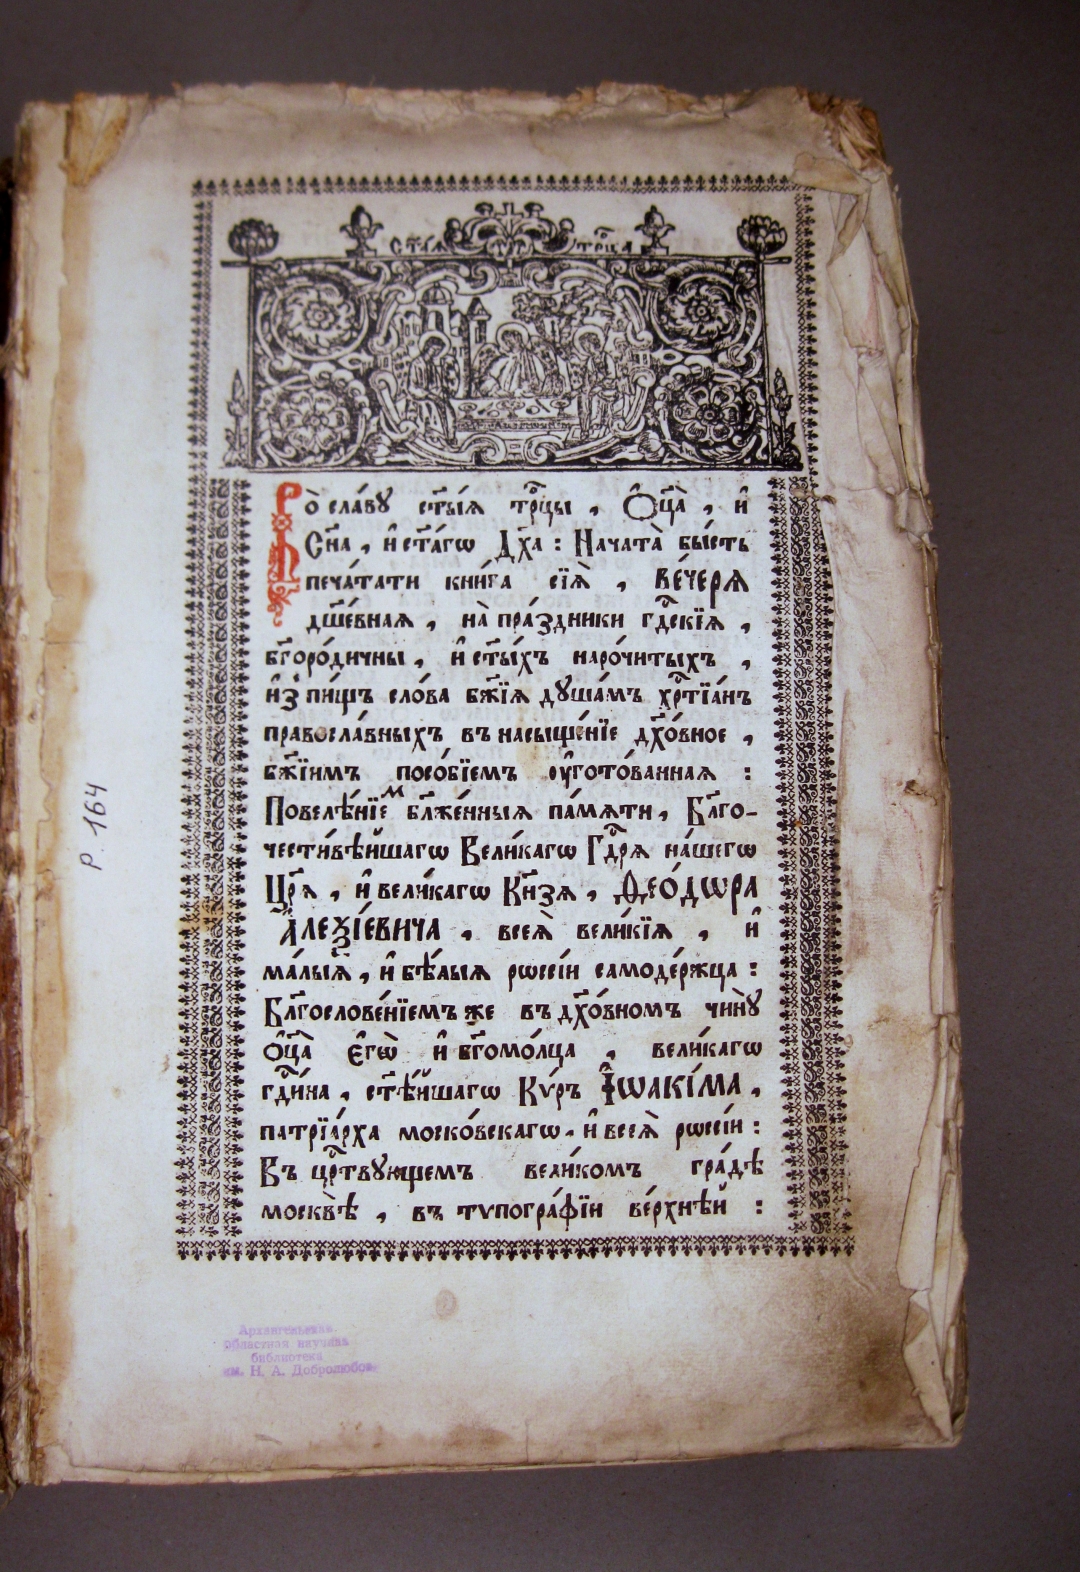 СТ҃АѦ ТРⷪ҇ЦА
Во̀ сла́вѹ ст҃ы́ѧ трⷪ҇цы , Ѻ҆ц҃а̀ , и҆
Сн҃а , и҆ ст҃а́гѡ Дх҃а : Начата̀ бы́сть
печа́тати кни́га сїѧ̀ , ве́черѧ
дш҃е́внаѧ , на̀ пра́здники гдⷭ҇кїѧ ,
бг҃оро́дичны , и҆ ст҃ы́хъ наро́читыхъ ,
и҆з̾ пищъ сло́ва бж҃їѧ дꙋша́мъ хрⷭ҇тїа́нъ
правосла́вныхъ въ насыще́нїе дх҃о́вное ,
бж҃їимъ посо́бїемъ ᲂу҆гото́ваннаѧ :
Повелѣ́нїеⷨ бл҃же́нныѧ па́мѧти , Бл҃го-
чести́вѣйшагѡ Вели́кагѡ Гдⷭ҇рѧ на́шегѡ
Цр҃ѧ , и҆ вели́кагѡ Кн҃зѧ , Ѳео́дѡра
А҆леѯі́евича , всеѧ̀ вели́кїѧ , и҆
ма́лыѧ , и҆ бѣ́лыѧ рѡссі́и самоде́ржца :
Бл҃гослове́нїемъ же въ дх҃о́вномъ чи́нꙋ
Ѻ҆ц҃а̀ є҆гѡ̀ и҆ бг҃омо́лца , вели́кагѡ
гдⷭ҇и́на , ст҃ѣ́йшагѡ Кѵ́ръ І҆ѡаки́ма ,
патрїа́рха моско́вскагѡ , и҆ всеѧ̀ рѡссі́и :
Въ црⷭ҇твꙋющемъ вели́комъ гра́дѣ
москвѣ̀ , въ тѵпогра́фїи ве́рхнѣй :
Р. 164
Архангельская
областная научная
библиотека
им. Н. А. Добролюбова